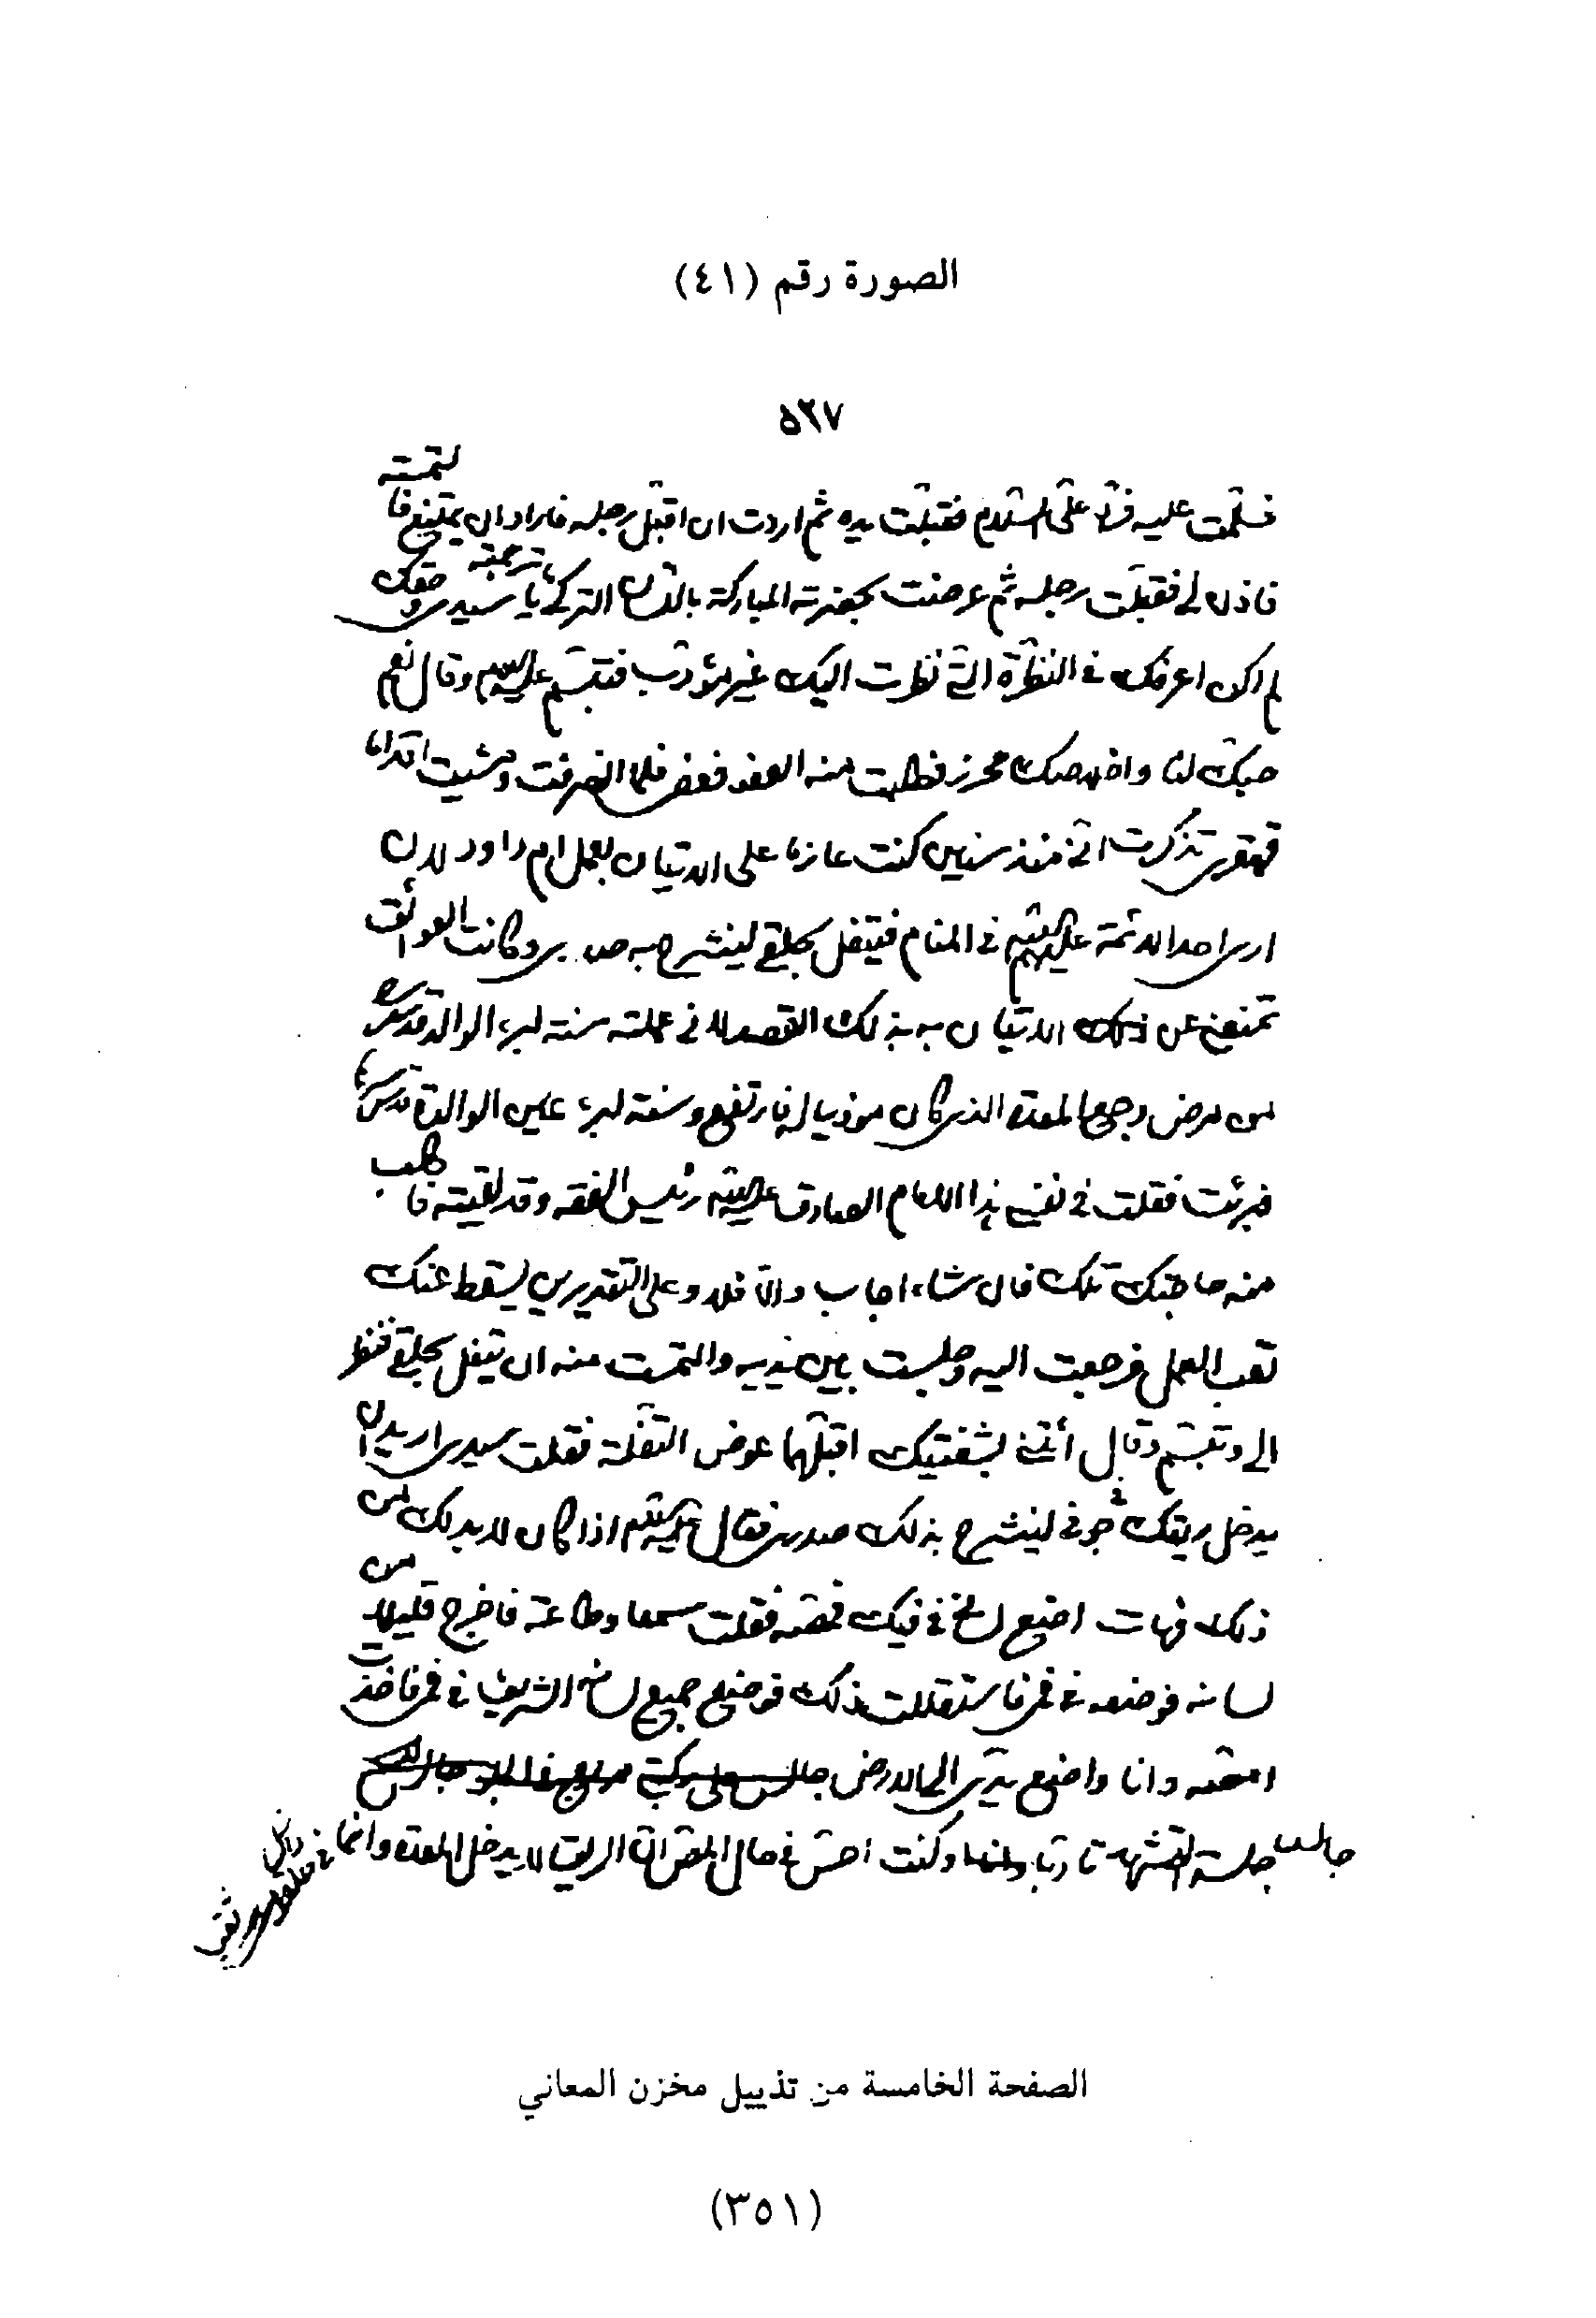 الصورة رقم (٤١)
٥٢٧
فسلّمت عليه فردّ علىّ السلام فقبّلت يده ثم اردت ان اقبّل رجله فاراد ان يمتنع فالتمسته
فاذن لى فقبّلت رجله ثم عرضت بحضرته المباركة باللسان التركى ما ترجمته يا سيدى وحقك
لم اكن اعرفك فى النظرة التى نظرت اليك غير مؤدّب فتبسّم عليه السلام وقال نعم
حبّك لنا واخلاصك محرز فطلبت منه العفو فعفى فلما انصرفت ومشيت اقداما
قهقرى تذكرت انى منذ سنين كنت عازما على الاتيان بعمل ام داود لان
ارى احد الائمة عليهم السلام فى المنام فيتفل بحلقى لينشرح به صدرى وكانت العوائق
تمنعنى عن الاتيان به بذلك القصد لانى عملته سنة لبرء الوالد قدس سره
من مرض وجع المعدة الذى كان موذيا له فارتفع وسنة لبرء عين الوالدة قدس سرها
فبرئت فقلت فى نفسى هذا الامام الصادق عليه السلام رئيس الفقه وقد لقيته فاطلب
منه حاجتك تلك فان شاء اجاب والّا فلا وعلى التقديرين يسقط عنك
تعب العمل فرجعت اليه وجلست بين يديه والتمست منه ان يتفل بحلقى فنظر
الى وتبسّم وقال أئتنى بشفتيك اقبّلها عوض التفلة فقلت سيدى اريد ان
يدخل ريقك فى جوفى لينشرح بذلك صدرى فقال عليه السلام اذا كان لا بد لك من
ذلك فهات اضع لسانى فى فيك فمصّه فقلت سمعا وطاعة فاخرج قليلا من
لسانه فوضعه فى فمى فاستقللت ذلك فوضع جميع لسانه الشريف فى فمى فاخذت
امصّه وانا واضع يدىّ الى الارض
جالس جلسة التشهد تادّبا وكنت احسّ فى حال المصّ انّ الريق لا يدخل المعدة وانما
الصفحة الخامسة من تذييل مخزن المعاني
(٣٥١)